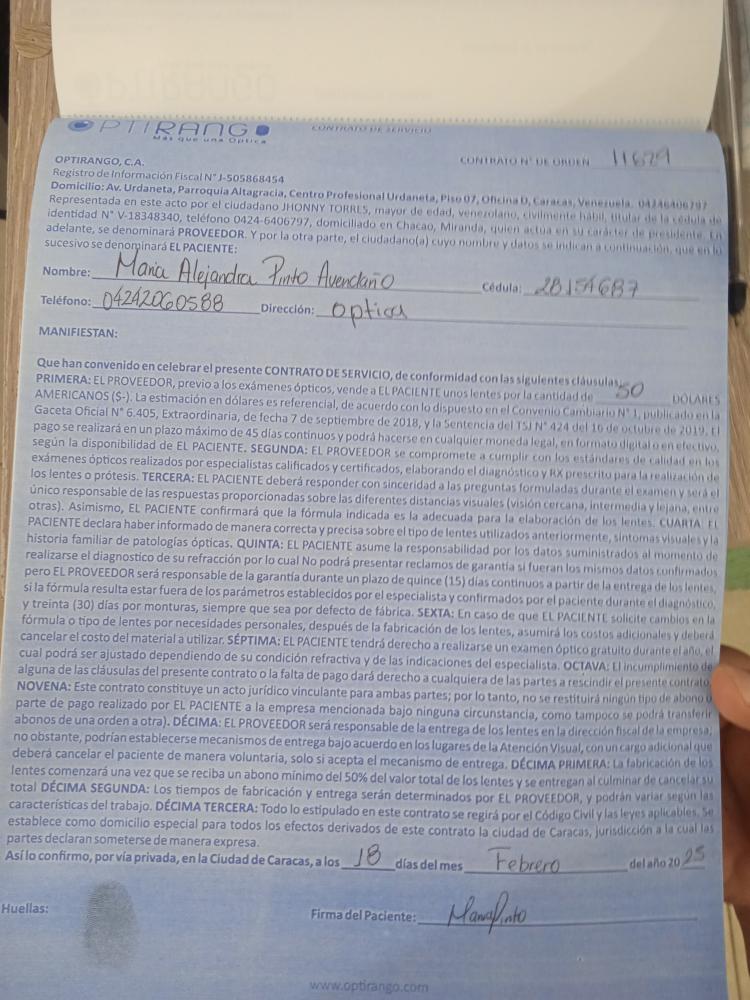 OPTIRANGO
Más que una Óptica
CONTRATO DE SERVICIO
OPTIRANGO, C.A.
CONTRATO N° DE ORDEN 11629
Registro de Información Fiscal N° J-505868454
Domicilio: Av. Urdaneta, Parroquia Altagracia, Centro Profesional Urdaneta, Piso 07, Oficina D, Caracas, Venezuela. 04246406797
Representada en este acto por el ciudadano JHONNY TORRES, mayor de edad, venezolano, civilmente hábil, titular de la cédula de
identidad N° V-18348340, teléfono 0424-6406797, domiciliado en Chacao, Miranda, quien actúa en su carácter de presidente. En
adelante, se denominará PROVEEDOR. Y por la otra parte, el ciudadano(a) cuyo nombre y datos se indican a continuación, que en lo
sucesivo se denominará EL PACIENTE:
Nombre: Maria Alejandra Pinto Avendaño Cédula: 28154687
Teléfono: 04242060588 Dirección: optica
MANIFIESTAN:
Que han convenido en celebrar el presente CONTRATO DE SERVICIO, de conformidad con las siguientes cláusulas:
PRIMERA: EL PROVEEDOR, previo a los exámenes ópticos, vende a EL PACIENTE unos lentes por la cantidad de 50 DÓLARES
AMERICANOS ($-). La estimación en dólares es referencial, de acuerdo con lo dispuesto en el Convenio Cambiario N° 1, publicado en la
Gaceta Oficial N° 6.405, Extraordinaria, de fecha 7 de septiembre de 2018, y la Sentencia del TSJ N° 424 del 16 de octubre de 2019. El
pago se realizará en un plazo máximo de 45 días continuos y podrá hacerse en cualquier moneda legal, en formato digital o en efectivo,
según la disponibilidad de EL PACIENTE. SEGUNDA: EL PROVEEDOR se compromete a cumplir con los estándares de calidad en los
exámenes ópticos realizados por especialistas calificados y certificados, elaborando el diagnóstico y RX prescrito para la realización de
los lentes o prótesis. TERCERA: EL PACIENTE deberá responder con sinceridad a las preguntas formuladas durante el examen y será el
único responsable de las respuestas proporcionadas sobre las diferentes distancias visuales (visión cercana, intermedia y lejana, entre
otras). Asimismo, EL PACIENTE confirmará que la fórmula indicada es la adecuada para la elaboración de los lentes. CUARTA: EL
PACIENTE declara haber informado de manera correcta y precisa sobre el tipo de lentes utilizados anteriormente, síntomas visuales y la
historia familiar de patologías ópticas. QUINTA: EL PACIENTE asume la responsabilidad por los datos suministrados al momento de
realizarse el diagnostico de su refracción por lo cual No podrá presentar reclamos de garantía si fueran los mismos datos confirmados
pero EL PROVEEDOR será responsable de la garantía durante un plazo de quince (15) días continuos a partir de la entrega de los lentes,
si la fórmula resulta estar fuera de los parámetros establecidos por el especialista y confirmados por el paciente durante el diagnóstico,
y treinta (30) días por monturas, siempre que sea por defecto de fábrica. SEXTA: En caso de que EL PACIENTE solicite cambios en la
fórmula o tipo de lentes por necesidades personales, después de la fabricación de los lentes, asumirá los costos adicionales y deberá
cancelar el costo del material a utilizar. SÉPTIMA: EL PACIENTE tendrá derecho a realizarse un examen óptico gratuito durante el año, el
cual podrá ser ajustado dependiendo de su condición refractiva y de las indicaciones del especialista. OCTAVA: El incumplimiento de
alguna de las cláusulas del presente contrato o la falta de pago dará derecho a cualquiera de las partes a rescindir el presente contrato.
NOVENA: Este contrato constituye un acto jurídico vinculante para ambas partes; por lo tanto, no se restituirá ningún tipo de abono o
parte de pago realizado por EL PACIENTE a la empresa mencionada bajo ninguna circunstancia, como tampoco se podrá transferir
abonos de una orden a otra). DÉCIMA: EL PROVEEDOR será responsable de la entrega de los lentes en la dirección fiscal de la empresa;
no obstante, podrían establecerse mecanismos de entrega bajo acuerdo en los lugares de la Atención Visual, con un cargo adicional que
deberá cancelar el paciente de manera voluntaria, solo si acepta el mecanismo de entrega. DÉCIMA PRIMERA: La fabricación de los
lentes comenzará una vez que se reciba un abono mínimo del 50% del valor total de los lentes y se entregan al culminar de cancelar su
total DÉCIMA SEGUNDA: Los tiempos de fabricación y entrega serán determinados por EL PROVEEDOR, y podrán variar según las
características del trabajo. DÉCIMA TERCERA: Todo lo estipulado en este contrato se regirá por el Código Civil y las leyes aplicables. Se
establece como domicilio especial para todos los efectos derivados de este contrato la ciudad de Caracas, jurisdicción a la cual las
partes declaran someterse de manera expresa.
Así lo confirmo, por vía privada, en la Ciudad de Caracas, a los 18 días del mes Febrero del año 2025
Huellas:
Firma del Paciente: MariaPinto
www.optirango.com